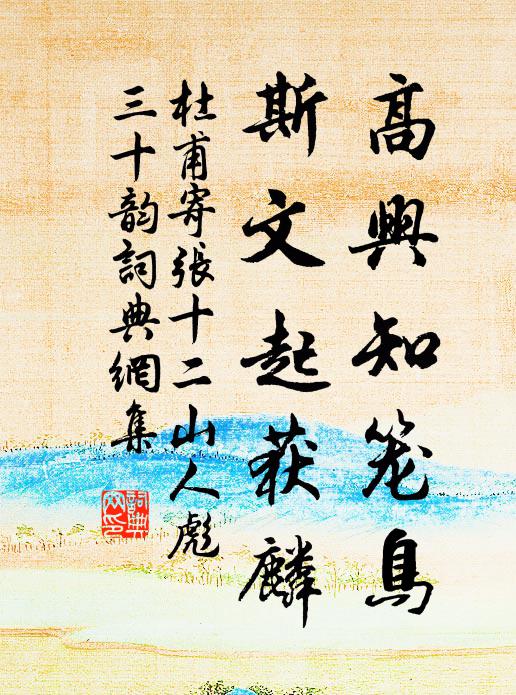 高興知笼鳥
斯文起获麟
杜甫寄張十二山人彪
三十韵詞典網集
詞典